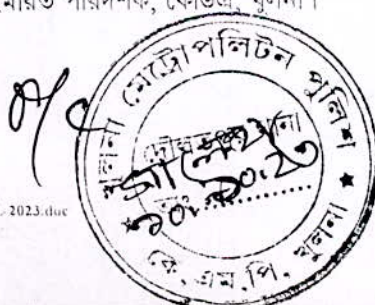 পরিদর্শক, কেডিএ, খুলনা।
খুলনা মেট্রোপলিটন পুলিশ
দৌলতপুর থানা
১০.১০.২৩
কে, এম, পি, খুলনা
2023.doc